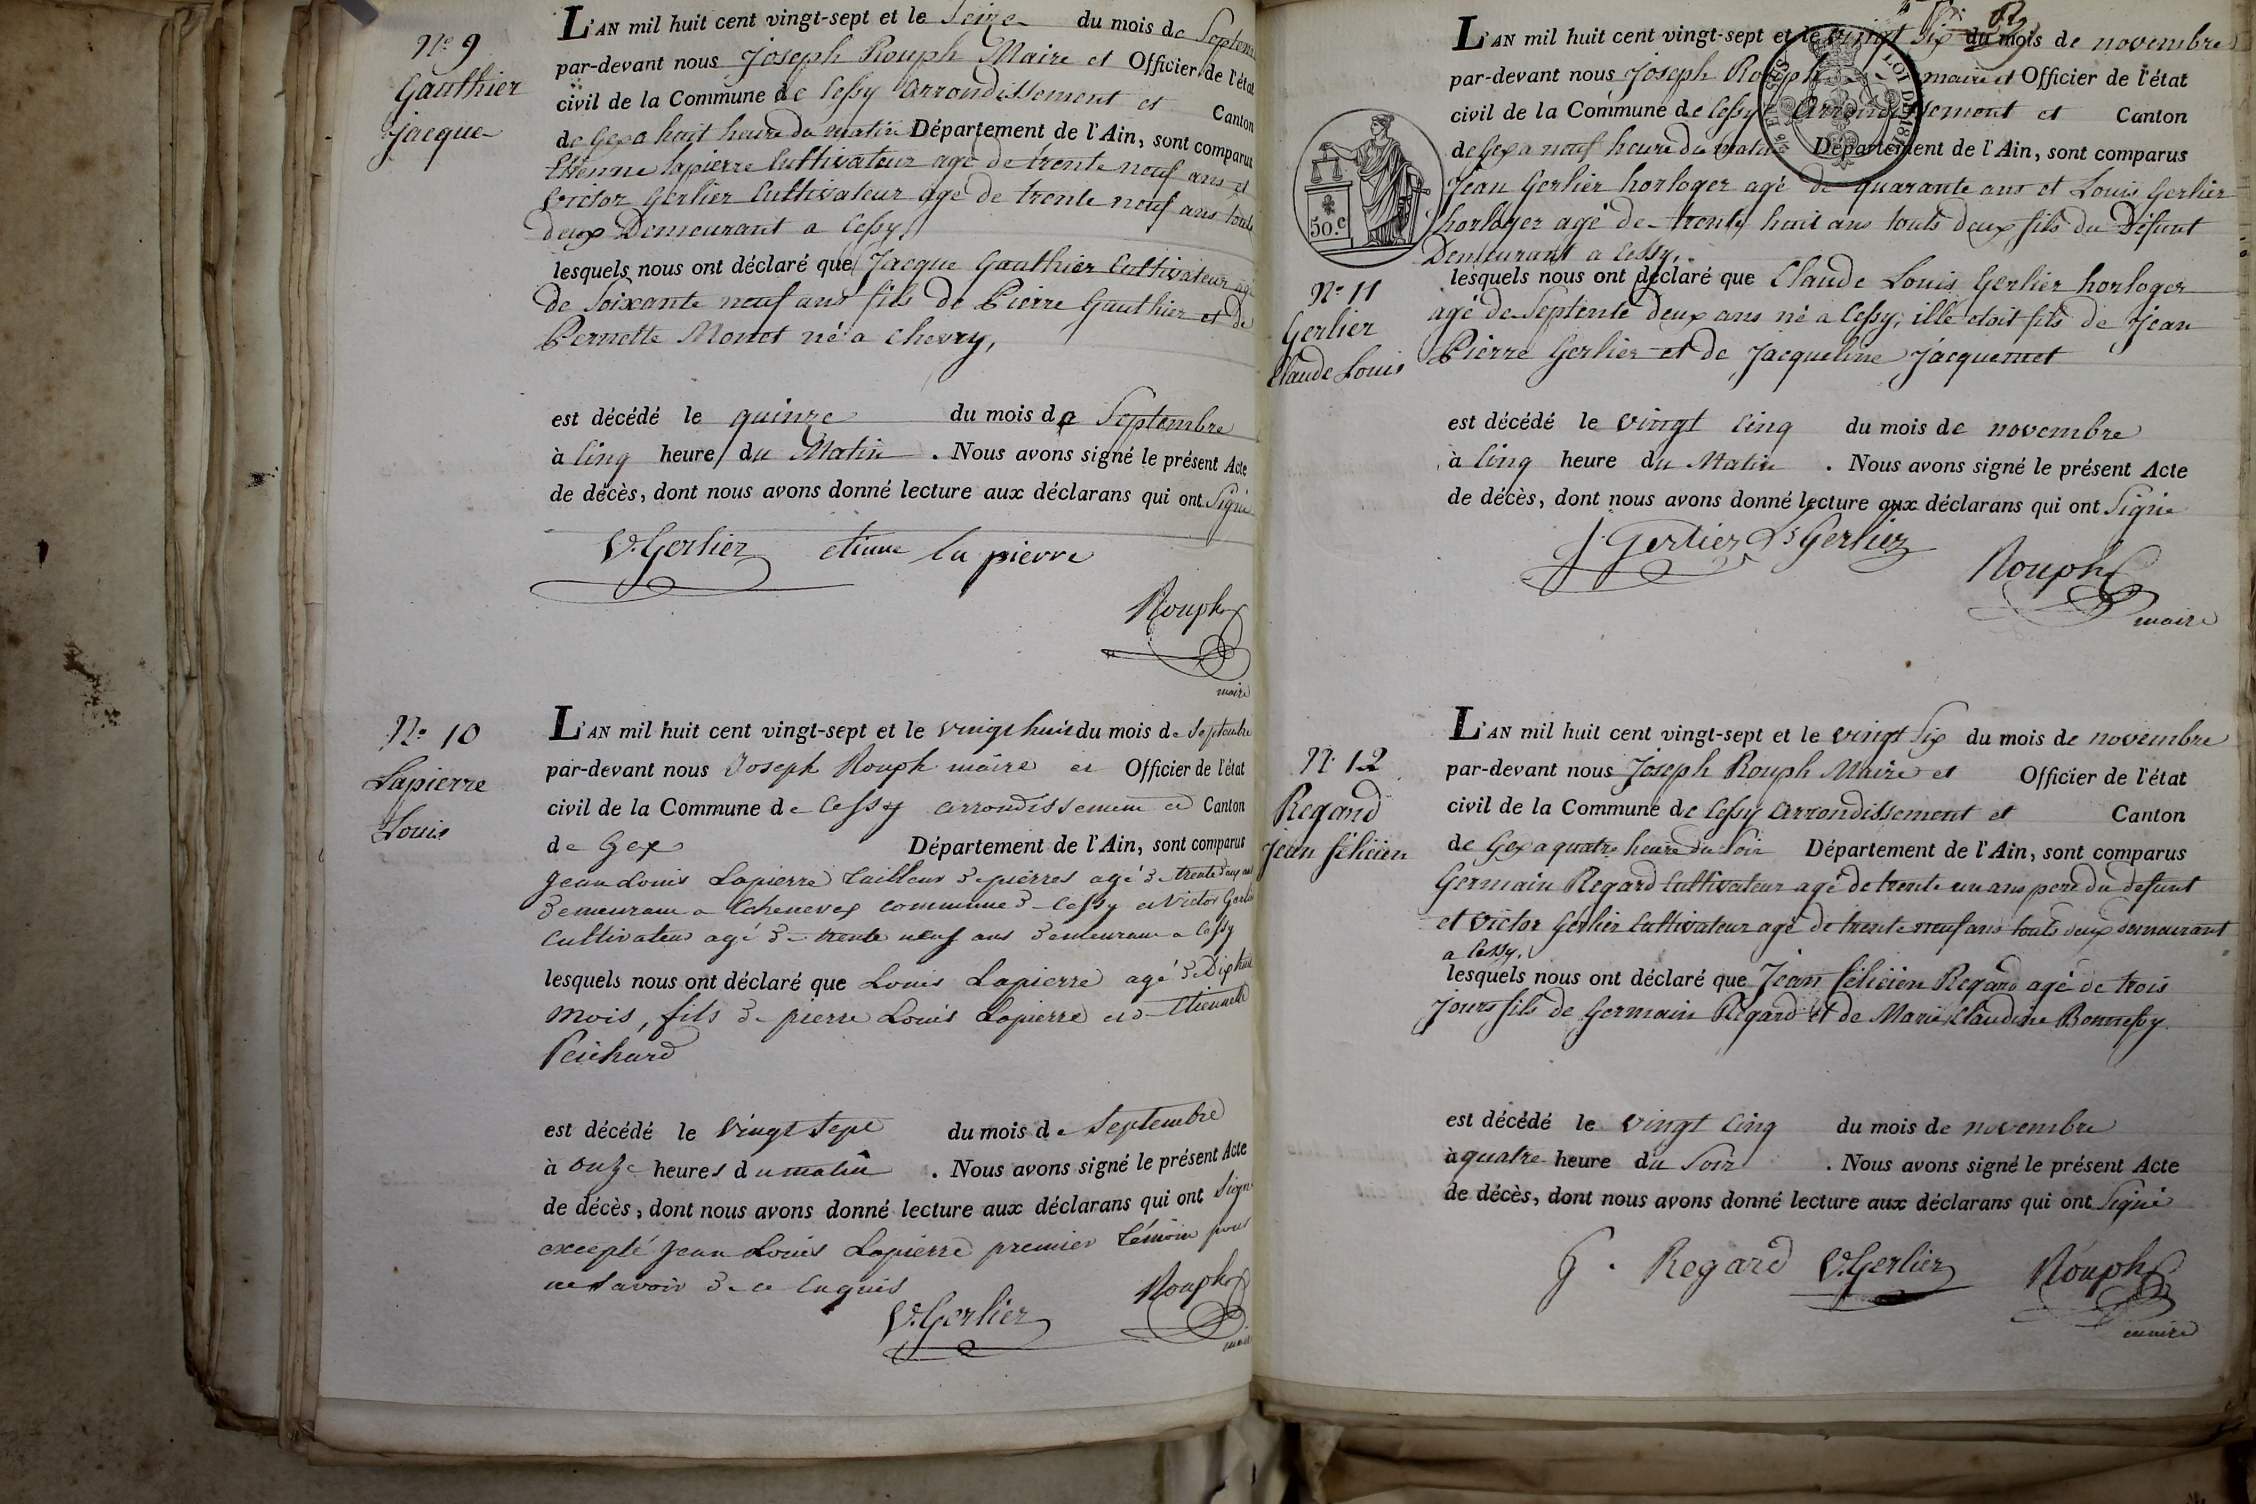 N.o 9
Gauthier
jacque
L'AN mil huit cent vingt-sept et le Seize du mois de Septem
par-devant nous Joseph Rouph Maire et Officier de l'état
civil de la Commune de Cessy Arrondissement et Canton
de Gex a huit heure du matin Département de l'Ain, sont comparus
Etienne lapierre Cultivateur agé de trente neuf ans et
Victor Gerlier Cultivateur age de trente neuf ans touts
deux Demeurant a Cessy,
lesquels nous ont déclaré que Jacque Gauthier Cultivateur agé
de Soixante neuf ans fils de Pierre Gauthier et de
Pernette Monet né a Chevry,
est décédé le quinze du mois de Septembre
à Cinq heure du Matin . Nous avons signé le présent Acte
de décès, dont nous avons donné lecture aux déclarans qui ont Signé
V. Gerlier etienne la pierre
Rouph
maire
N.o 10
Lapierre
Louis
L'AN mil huit cent vingt-sept et le vingt huit du mois de Septembre
par-devant nous Joseph Rouph maire et Officier de l'état
civil de la Commune de Cessy arrondissement et Canton
de Gex Département de l'Ain, sont comparus
Jean Louis Lapierre tailleur de pierres agé de trente deux ans
demeurant a Echenevex commune de Cessy et Victor Gerlier
Cultivateur agé de trente neuf ans demeurant a Cessy
lesquels nous ont déclaré que Louis Lapierre agé de Dix huit
mois, fils de pierre Louis Lapierre et d'Etiennette
Peichard
est décédé le vingt sept du mois de Septembre
à onze heures du matin . Nous avons signé le présent Acte
de décès, dont nous avons donné lecture aux déclarans qui ont Signé
excepté Jean Louis Lapierre premier témoin pour
ne savoir de ce Enquis
V. Gerlier Rouph
maire
L'AN mil huit cent vingt-sept et le vingt Six du mois de novembre
par-devant nous Joseph Rouph maire et Officier de l'état
civil de la Commune de Cessy Arrondissement et Canton
de Gex a neuf heure du matin Département de l'Ain, sont comparus
Jean Gerlier horloger agé de quarante ans et Louis Gerlier
horloger agé de trente huit ans touts deux fils du Défunt
50.c
Demeurant a Cessy,
N.o 11
Gerlier
Claude Louis
lesquels nous ont déclaré que Claude Louis Gerlier horloger
agé de Septente deux ans né a Cessy, ille etoit fils de Jean
Pierre Gerlier et de Jacqueline Jacquemet
est décédé le vingt Cinq du mois de novembre
à Cinq heure du Matin . Nous avons signé le présent Acte
de décès, dont nous avons donné lecture aux déclarans qui ont Signé
J. Gerlier Ls Gerlier
Rouph
maire
N. 12
Regard
Jean félicien
L'AN mil huit cent vingt-sept et le vingt Six du mois de novembre
par-devant nous Joseph Rouph Maire et Officier de l'état
civil de la Commune de Cessy Arrondissement et Canton
de Gex a quatre heure du Soir Département de l'Ain, sont comparus
Germain Regard Cultivateur agé de trente un ans pere du defunt
et Victor Gerlier Cultivateur agé de trente neuf ans touts deux demeurant
a Cessy.
lesquels nous ont déclaré que Jean félicien Regard agé de trois
Jours fils de Germain Regard et de Marie Claudine Bonnefoy.
est décédé le vingt Cinq du mois de novembre
à quatre heure du Soir . Nous avons signé le présent Acte
de décès, dont nous avons donné lecture aux déclarans qui ont Signé
G. Regard V. Gerlier Rouph
maire